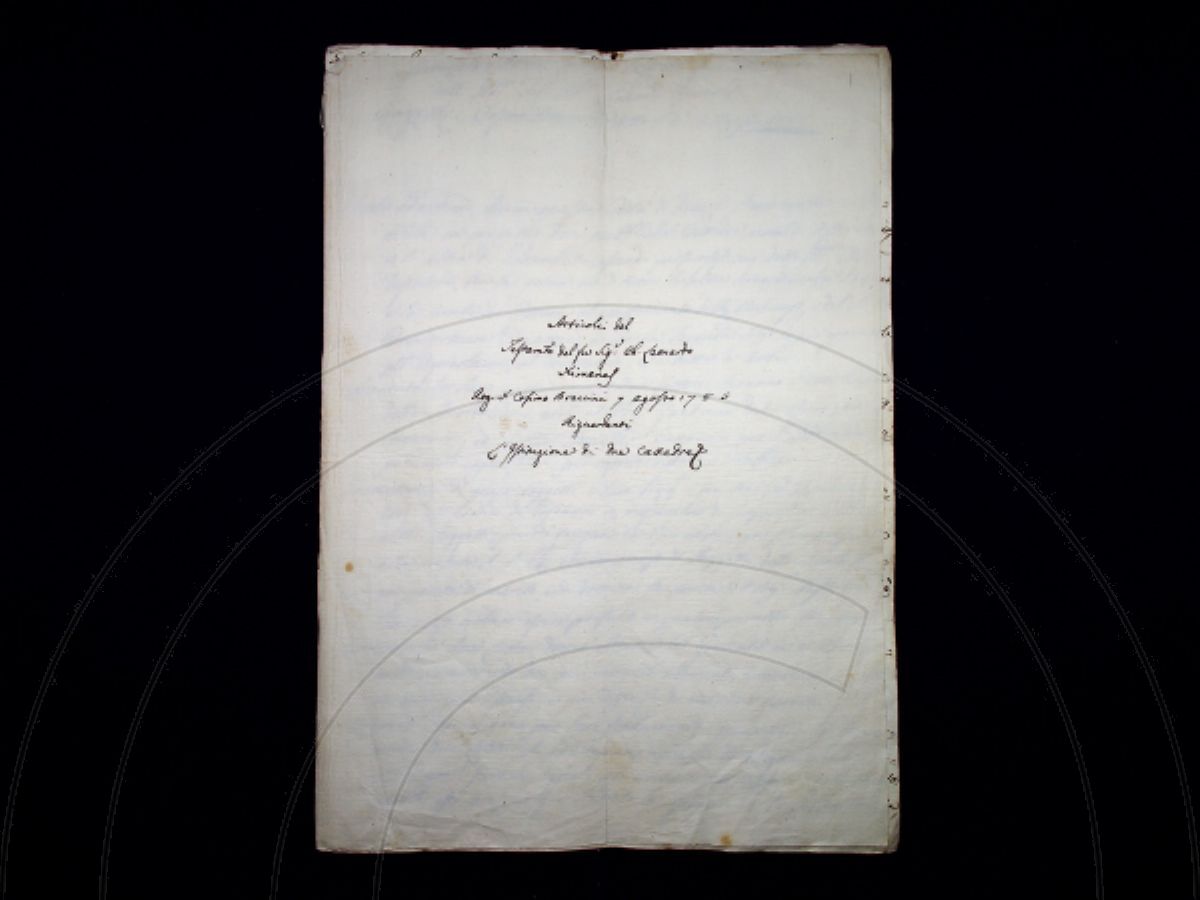 Articoli del
Testam.to del fu Sig.r Ab. Leonardo
Ximenes
Rog.o Ser Cosimo Braccini 7 agosto 1784
Riguardanti
L'Istituzione di due Cattedre